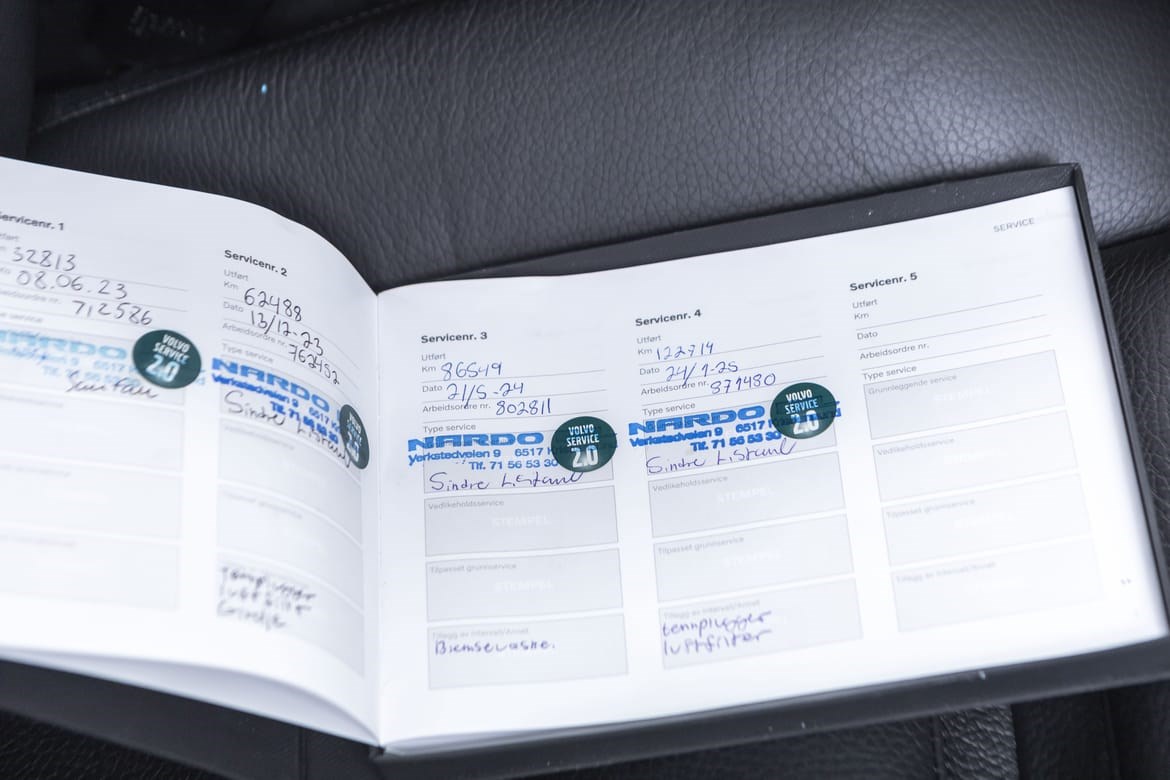 Servicenr. 1
32813
08.06.23
Arbeidsordre nr. 712586
Type service
NARDO
VOLVO
SERVICE
2.0
Servicenr. 2
Utført
Km 62488
Dato 13/12-23
Arbeidsordre nr. 762452
Type service
NARDO
Verkstedveien 9 6517
Tlf. 71 56 53 30
Sindre
tennplugger
luftfilter
Servicenr. 3
Utført
Km 86549
Dato 21/5-24
Arbeidsordre nr. 802811
Type service
NARDO
Verkstedveien 9 6517
Tlf. 71 56 53 30
VOLVO
SERVICE
2.0
Sindre
Vedlikeholdsservice
STEMPEL
Tilpasset grunnservice
STEMPEL
Tillegg av intervall/Annet
Bremsevæske.
Servicenr. 4
Utført
Km 122714
Dato 24/1-25
Arbeidsordre nr. 871480
Type service
NARDO
Verkstedveien 9 6517
Tlf. 71 56 53 30
VOLVO
SERVICE
2.0
Sindre
Vedlikeholdsservice
STEMPEL
Tilpasset grunnservice
STEMPEL
Tillegg av intervall/Annet
tennplugger
luftfilter
SERVICE
Servicenr. 5
Utført
Km
Dato
Arbeidsordre nr.
Type service
Grunnleggende service
STEMPEL
Vedlikeholdsservice
STEMPEL
Tilpasset grunnservice
STEMPEL
Tillegg av intervall/Annet
STEMPEL